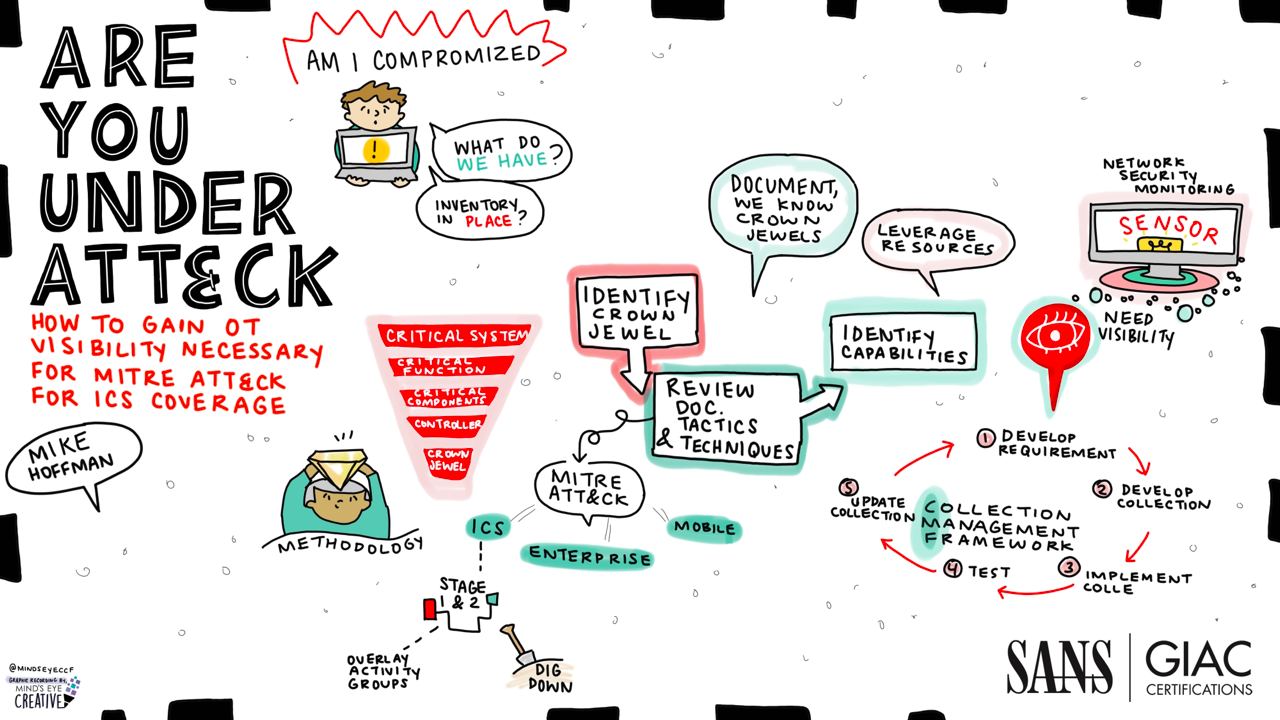 ARE
YOU
UNDER
ATT&CK
HOW TO GAIN OT
VISIBILITY NECESSARY
FOR MITRE ATT&CK
FOR ICS COVERAGE
MIKE
HOFFMAN
AM I COMPROMIZED
!
WHAT DO
WE HAVE?
INVENTORY
IN PLACE?
CRITICAL SYSTEM
CRITICAL
FUNCTION
CRITICAL
COMPONENTS
CONTROLLER
CROWN
JEWEL
METHODOLOGY
IDENTIFY
CROWN
JEWEL
REVIEW
DOC.
TACTICS
& TECHNIQUES
MITRE
ATT&CK
ICS
ENTERPRISE
MOBILE
STAGE
1 & 2
OVERLAY
ACTIVITY
GROUPS
DIG
DOWN
DOCUMENT,
WE KNOW
CROWN
JEWELS
LEVERAGE
RESOURCES
IDENTIFY
CAPABILITIES
NETWORK
SECURITY
MONITORING
SENSOR
NEED
VISIBILITY
COLLECTION
MANAGEMENT
FRAMEWORK
1 DEVELOP
REQUIREMENT
2 DEVELOP
COLLECTION
3 IMPLEMENT
COLLE
4 TEST
5 UPDATE
COLLECTION
@MINDSEYECCF
GRAPHIC RECORDING BY,
MIND'S EYE
CREATIVE
SANS
GIAC
CERTIFICATIONS